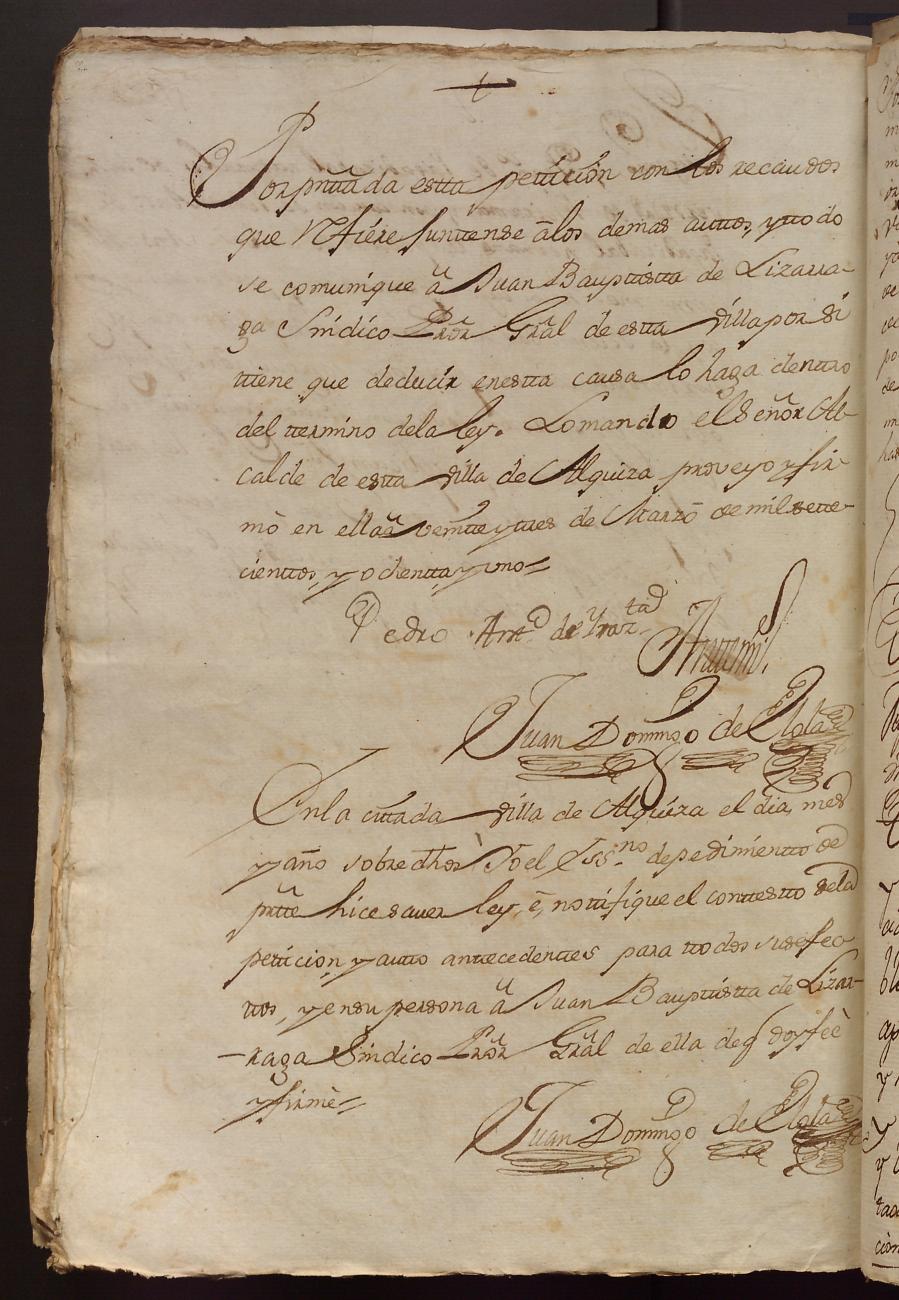 Por pñtada estta petticion con los recaudos
que refiere Junttense â los demas auttos, y ttodo
se comunique â Juan Bauptistta de Lizarra-
ga Sindico Pror Gral de estta Villa por si
ttiene que deducir en estta causa lo haga denttro
del ttermino de la ley. Lo mando el Señor Al-
calde de estta Villa de Alquiza proveyo y fir-
mò en ella â veintte y ttres de Marzo de mil sette-
cienttos, y ochentta y uno=
Pedro Antt.º de
Antte mi
Juan Domingo de
En la cittada Villa de Alquiza el dia, mes
y año sobre dhos Yo el Ess.no de pedimientto de
ptte hice saver ley, è, nottifique el conttestto de la
petticion, y autto anttecedenttes para ttodos sus efec-
ttos, y en su persona â Juan Bauptistta de Lizar-
raga Sindico Pror Gral de ella de q doy feè
y firmè=
Juan Domingo de